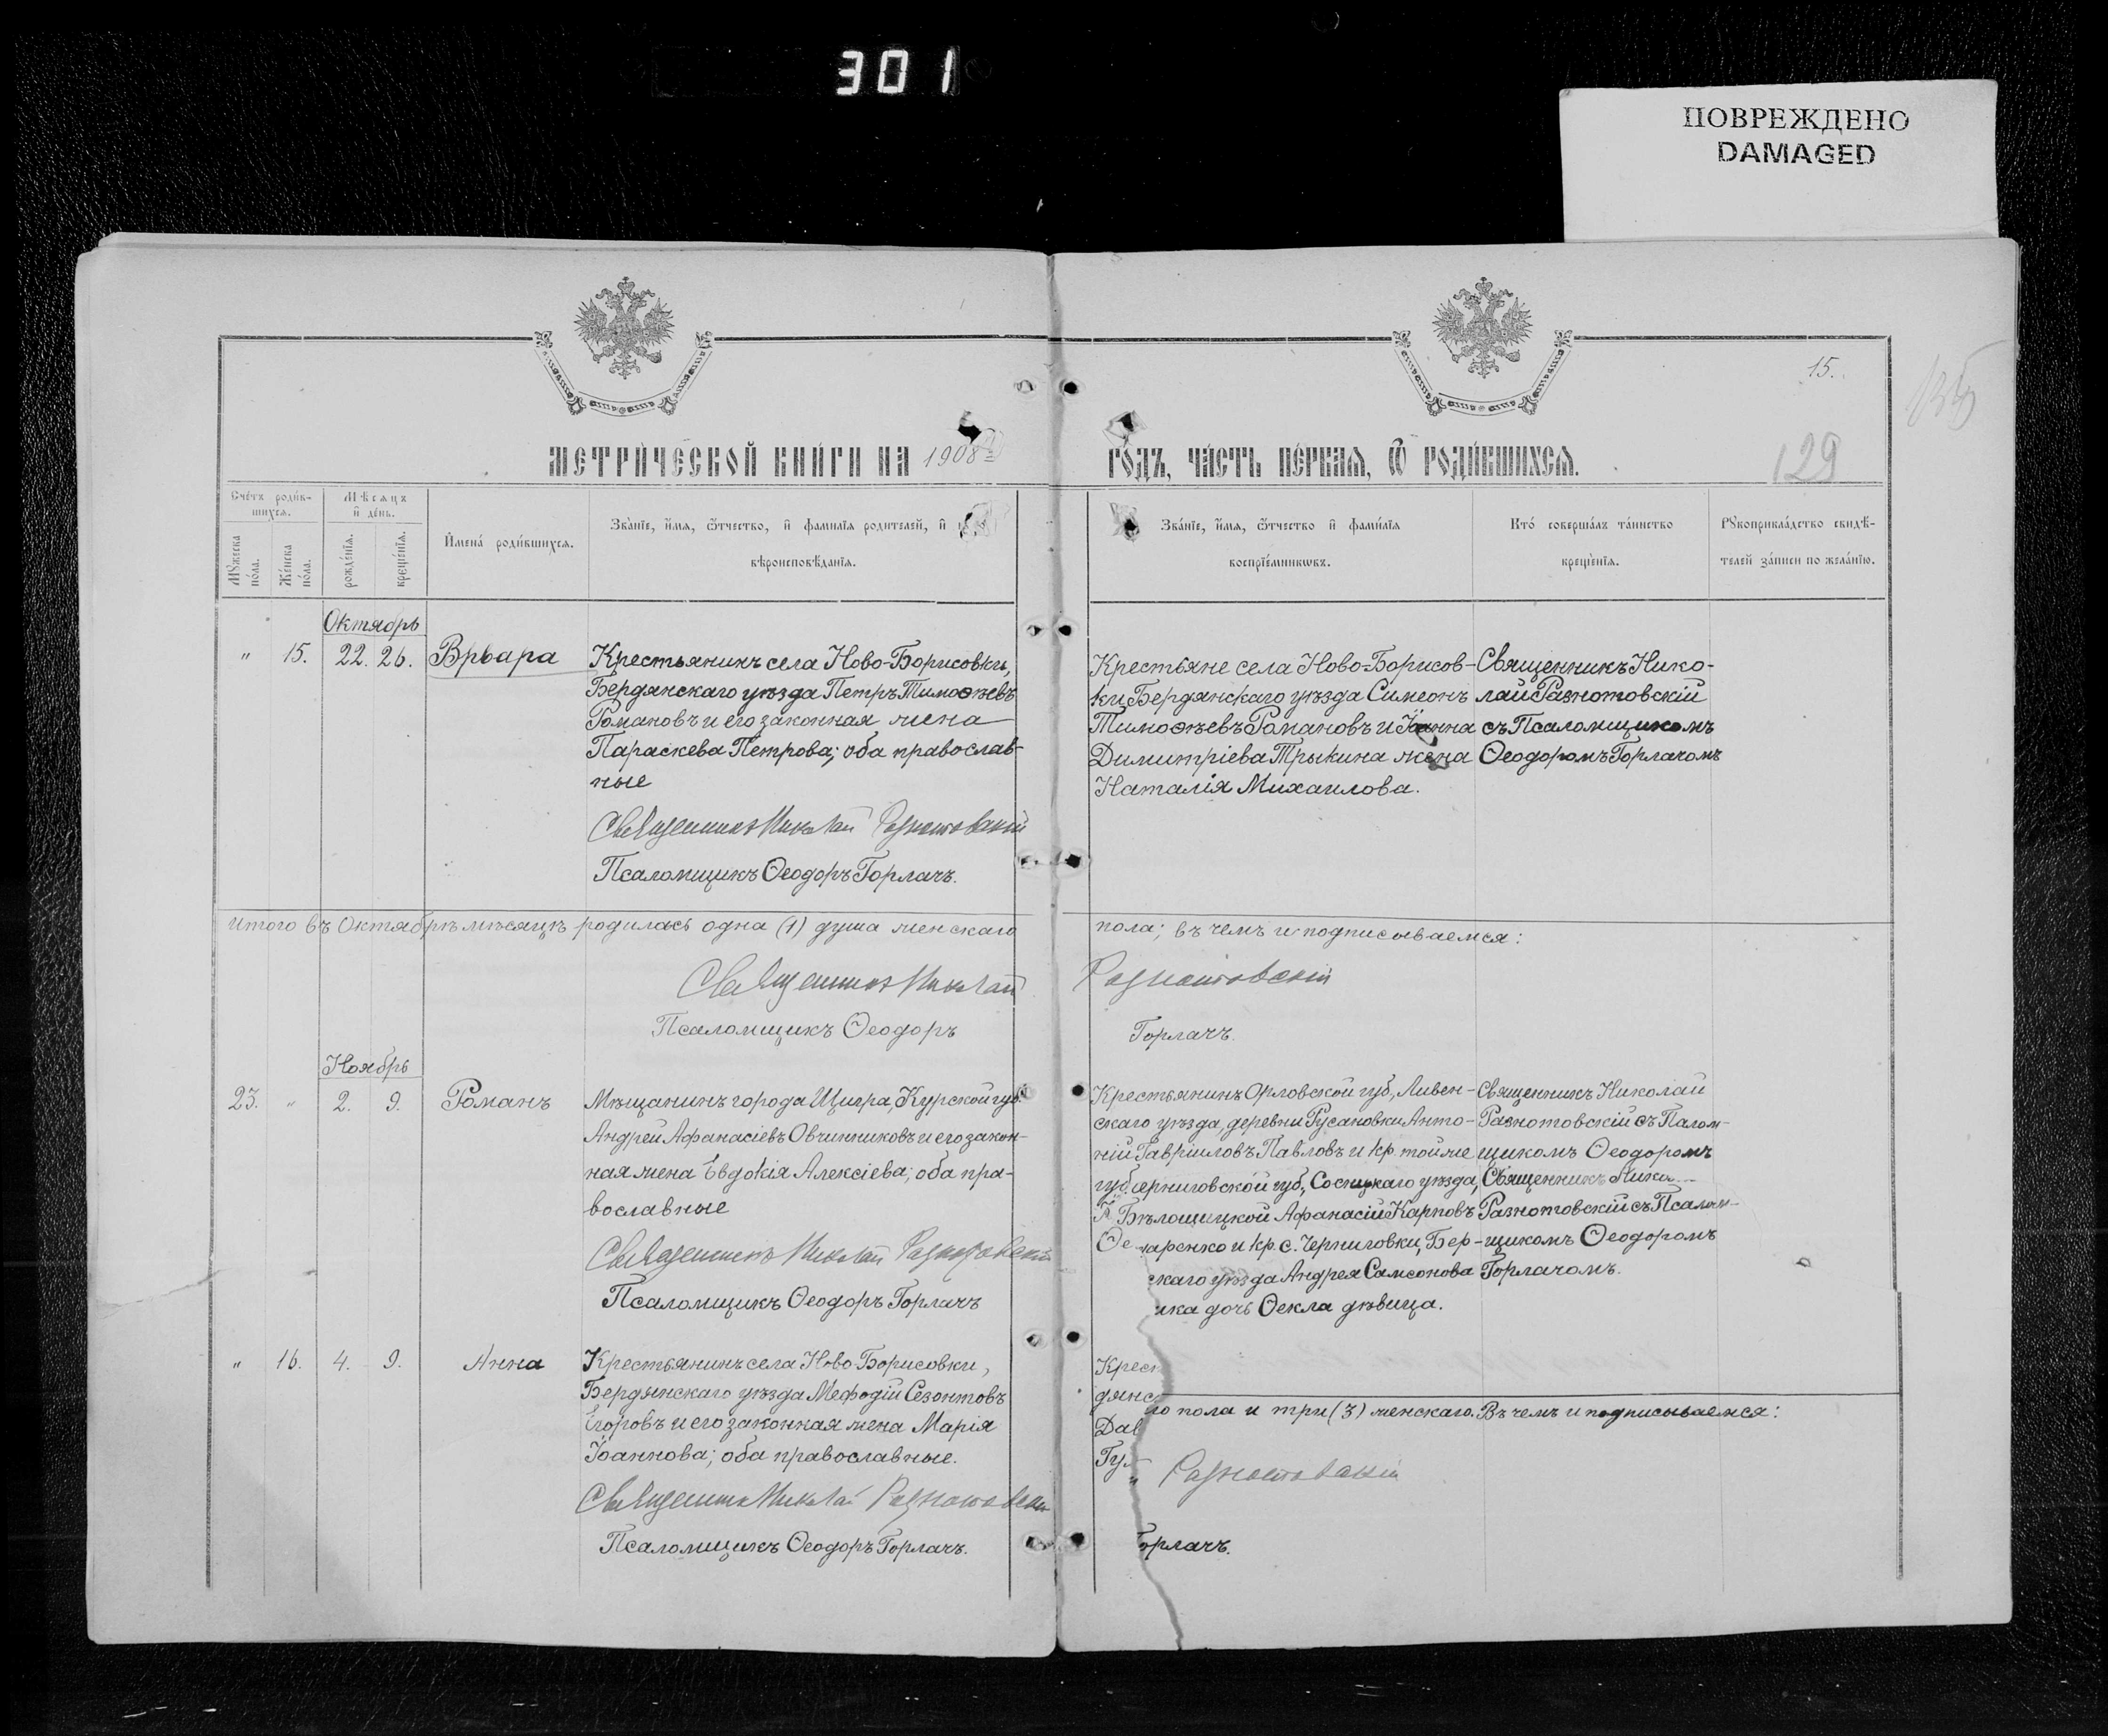 301
ПОВРЕЖДЕНО
DAMAGED
15.
129
МЕТРИЧЕСКОЙ КНИГИ НА 1908й
ГОДЪ, ЧАСТЬ ПЕРВАЯ, Ѿ РОДИВШИХСЯ.
Счетъ родив-
шихся.
Мѣсяцъ
и день.
Мужеска
пола.
Женска
пола.
рожденїя.
крещенїя.
Имена родившихся.
Званїе, имя, ѿчество, и фамилїя родителей, и
вѣроисповѣданїя.
Званїе, имя, ѿчество и фамилїя
воспрїемниковъ.
Кто совершалъ таинство
крещенїя.
Рукоприкладство свидѣ-
телей записи по желанїю.
Октябрь
" 15. 22. 26. Врвара
Крестьянинъ села Ново-Борисовки,
Бердянскаго уѣзда Петръ Тимоѳѣевъ
Романовъ и его законная жена
Параскева Петрова; оба православ-
ные
Священникъ Николай Разнотовскій
Псаломщикъ Ѳеодоръ Горлачъ.
Крестьяне села Ново-Борисов-
ки Бердянскаго уѣзда Симеонъ
Тимоѳѣевъ Романовъ и Іоанна
Димитріева Трыкина жена
Наталія Михаилова.
Священникъ Нико-
лай Разнотовскій
съ Псаломщикомъ
Ѳеодоромъ Горлачомъ
Итого въ Октябрѣ мѣсяцѣ родилась одна (1) душа женскаго пола; въ чемъ и подписываемся:
Священникъ Николай Разнотовскій
Псаломщикъ Ѳеодоръ Горлачъ.
Ноябрь
23. " 2. 9. Романъ
Мѣщанинъ города Щигра, Курской губ.
Андрей Афанасіевъ Овчинниковъ и его закон-
ная жена Евдокія Алексіева; оба пра-
вославные
Священникъ Николай Разнотовскій
Псаломщикъ Ѳеодоръ Горлачъ
Крестьянинъ Орловской губ., Ливен-
скаго уѣзда, деревни Русановки Анто-
ній Гавріиловъ Павловъ и кр. той же
губ. ерниговской губ., Сосницкаго уѣзда,
Бѣлощицкой Афанасій Карповъ
Ѳе аренко и кр. с. Черниговки, Бер-
скаго уѣзда Андрея Самсонова
ика дочь Ѳекла дѣвица.
Священникъ Николай
Разнотовскій съ Палом-
щикомъ Ѳеодоромъ
Священникъ Нико
Разнотовскій съ Псалом-
щикомъ Ѳеодоромъ
Горлачомъ.
" 16. 4. 9. Анна
Крестьянинъ села Ново-Борисовки,
Бердянскаго уѣзда Мефодій Сезонтовъ
Егоровъ и его законная жена Марія
Іоаннова; оба православные.
Священникъ Николай Разнотовскій
Псаломщикъ Ѳеодоръ Горлачъ.
Крес
дянс
Дав
Гул
го пола и три (3) женскаго. Въ чемъ и подписываемся:
Разнотовскій
орлачъ.